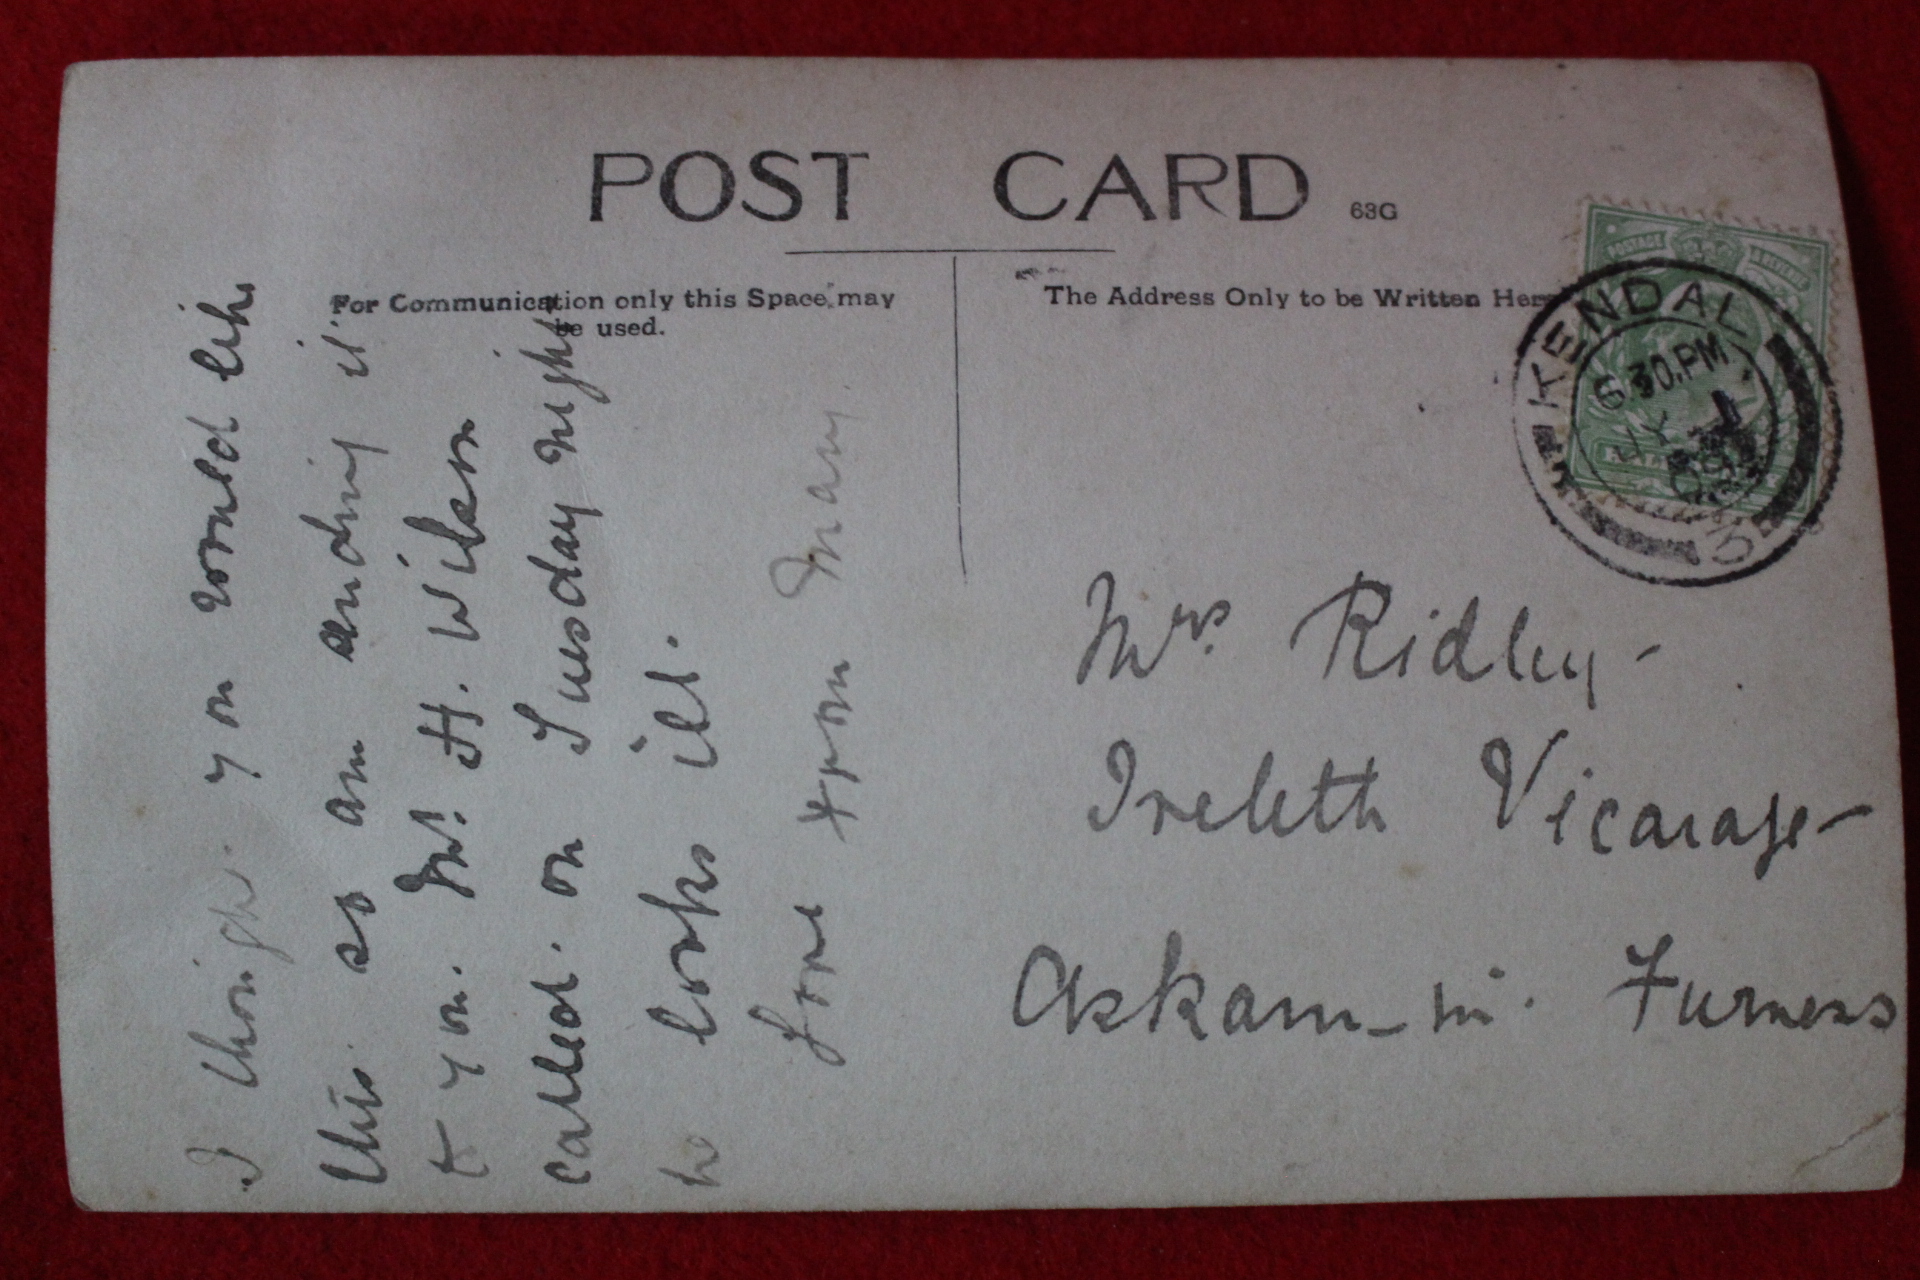 POST CARD 63G
For Communication only this Space may
be used.
The Address Only to be Written Here
POSTAGE & REVENUE
KENDAL
6 30.PM
I thought you would like
this so am sending it
to you. Mr. H. Wilson
called. on Tuesday night
he looks ill.
Love from Mary.
Mrs Ridley-
Ireleth Vicarage-
Askam-in. Furness